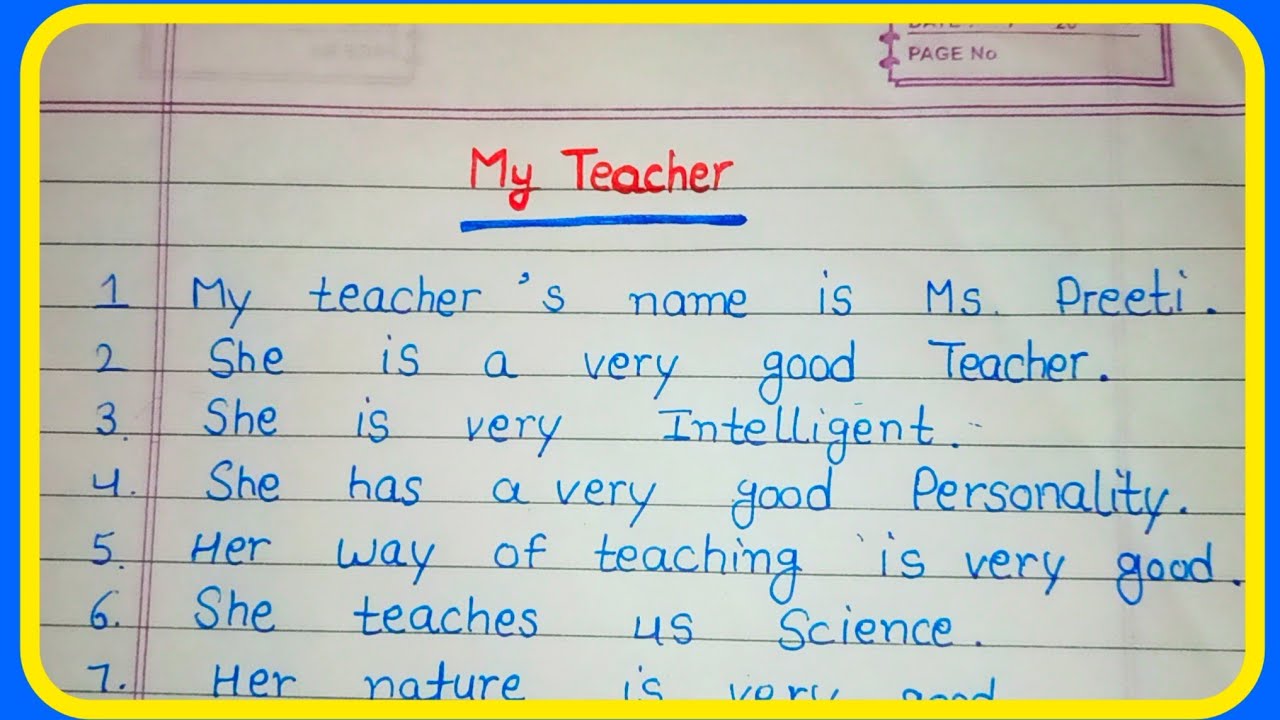 PAGE No
My Teacher
1 My teacher's name is Ms. Preeti.
2 She is a very good Teacher.
3. She is very Intelligent.
4. She has a very good Personality.
5. Her way of teaching is very good.
6. She teaches us Science.
7. Her nature is very good